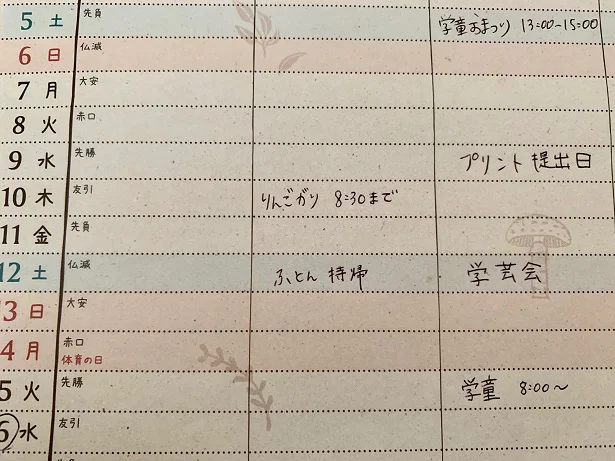 5 土 先負 学童おまつり 13:00~15:00
6 日 仏滅
7 月 大安
8 火 赤口
9 水 先勝 プリント提出日
10 木 友引 りんごがり 8:30まで
11 金 先負
12 土 仏滅 ふとん持帰 学芸会
3 日 大安
4 月 赤口
体育の日
5 火 先勝 学童 8:00~
6 水 友引